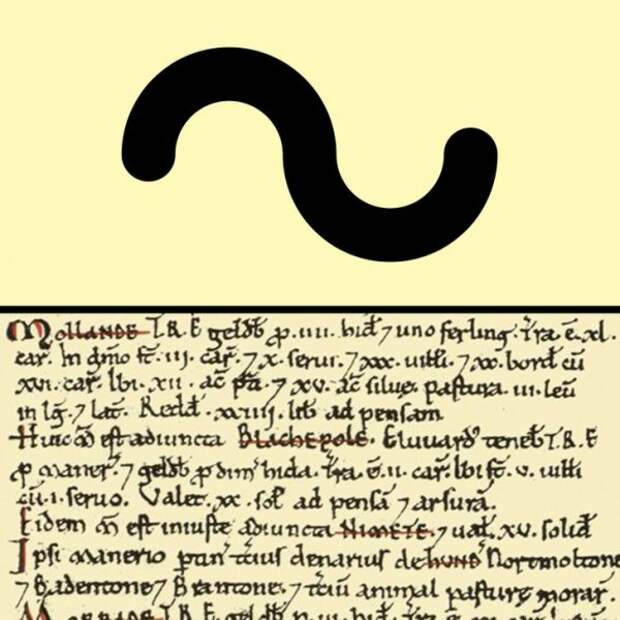 Mollande T.R.E geldb̄ ꝑ .iiii. hid̄ ⁊ uno ferling. Tr̄a ē.xl.
car̄. In dn̄io st̄ .iii. car̄. ⁊ x. serui. ⁊ xxx. uilli. ⁊ xx. bord̄ cū
xvi. car̄. Ibi .xii. ac̄ p̄ti. ⁊ xv. ac̄ siluę. Pastura .iii. leū
in lḡ. ⁊ lat̄. Redd̄ .xxiiii. lib̄ ad pensam
Huic m̄ est adiuncta Blachepole. Eluuard' teneb̄ T.R.E
ꝑ maner̄. ⁊ geldb̄ ꝑ dim' hida. Tr̄a ē.ii. car̄. Ibi st̄. v. uilli
cū.i. seruo. Valet .xx. sol̄ ad pensā ⁊ arsurā.
Eidem m̄ est iniuste adiuncta Nimete. ⁊ ual̄. xv. solid̄
Ipsi manerio ptin' tcius denarius de hund' Nortmoltone
⁊ Badentone ⁊ Brantone. ⁊ tciū animal pasturę morar.